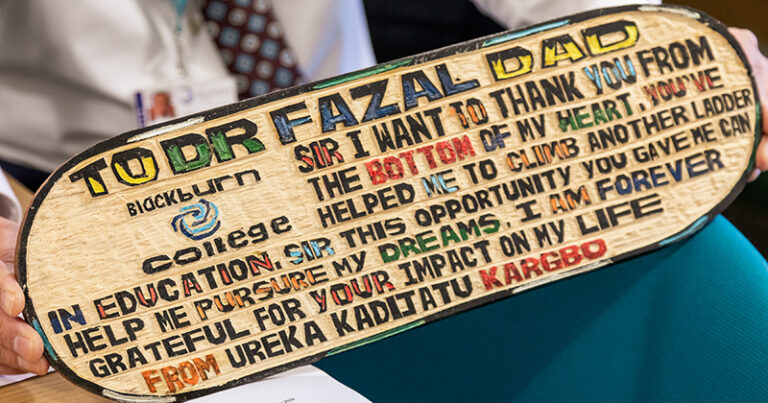 TO DR FAZAL DAD
Blackburn
college
SIR I WANT TO THANK YOU FROM
THE BOTTOM OF MY HEART, YOU'VE
HELPED ME TO CLIMB ANOTHER LADDER
IN EDUCATION, SIR, THIS OPPORTUNITY YOU GAVE ME CAN
HELP ME PURSURE MY DREAMS, I AM FOREVER
GRATEFUL FOR YOUR IMPACT ON MY LIFE
FROM UREKA KADIJATU KARGBO